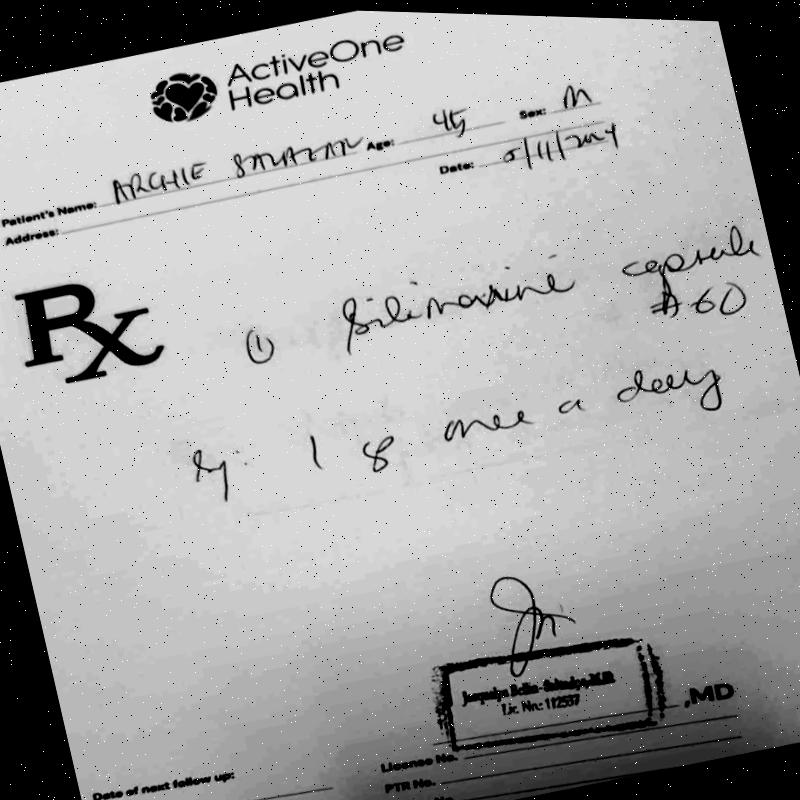 ActiveOne
Health
Patient's Name: ARCHIE SALAZAR Age: 45 Sex: M
Address: Date: 5/11/2024
Rx
① Silimarine capsule
#60
Sig. 1 8 once a day
Lic. No.: 112537
,MD
License No.
PTR No.
Date of next follow up: